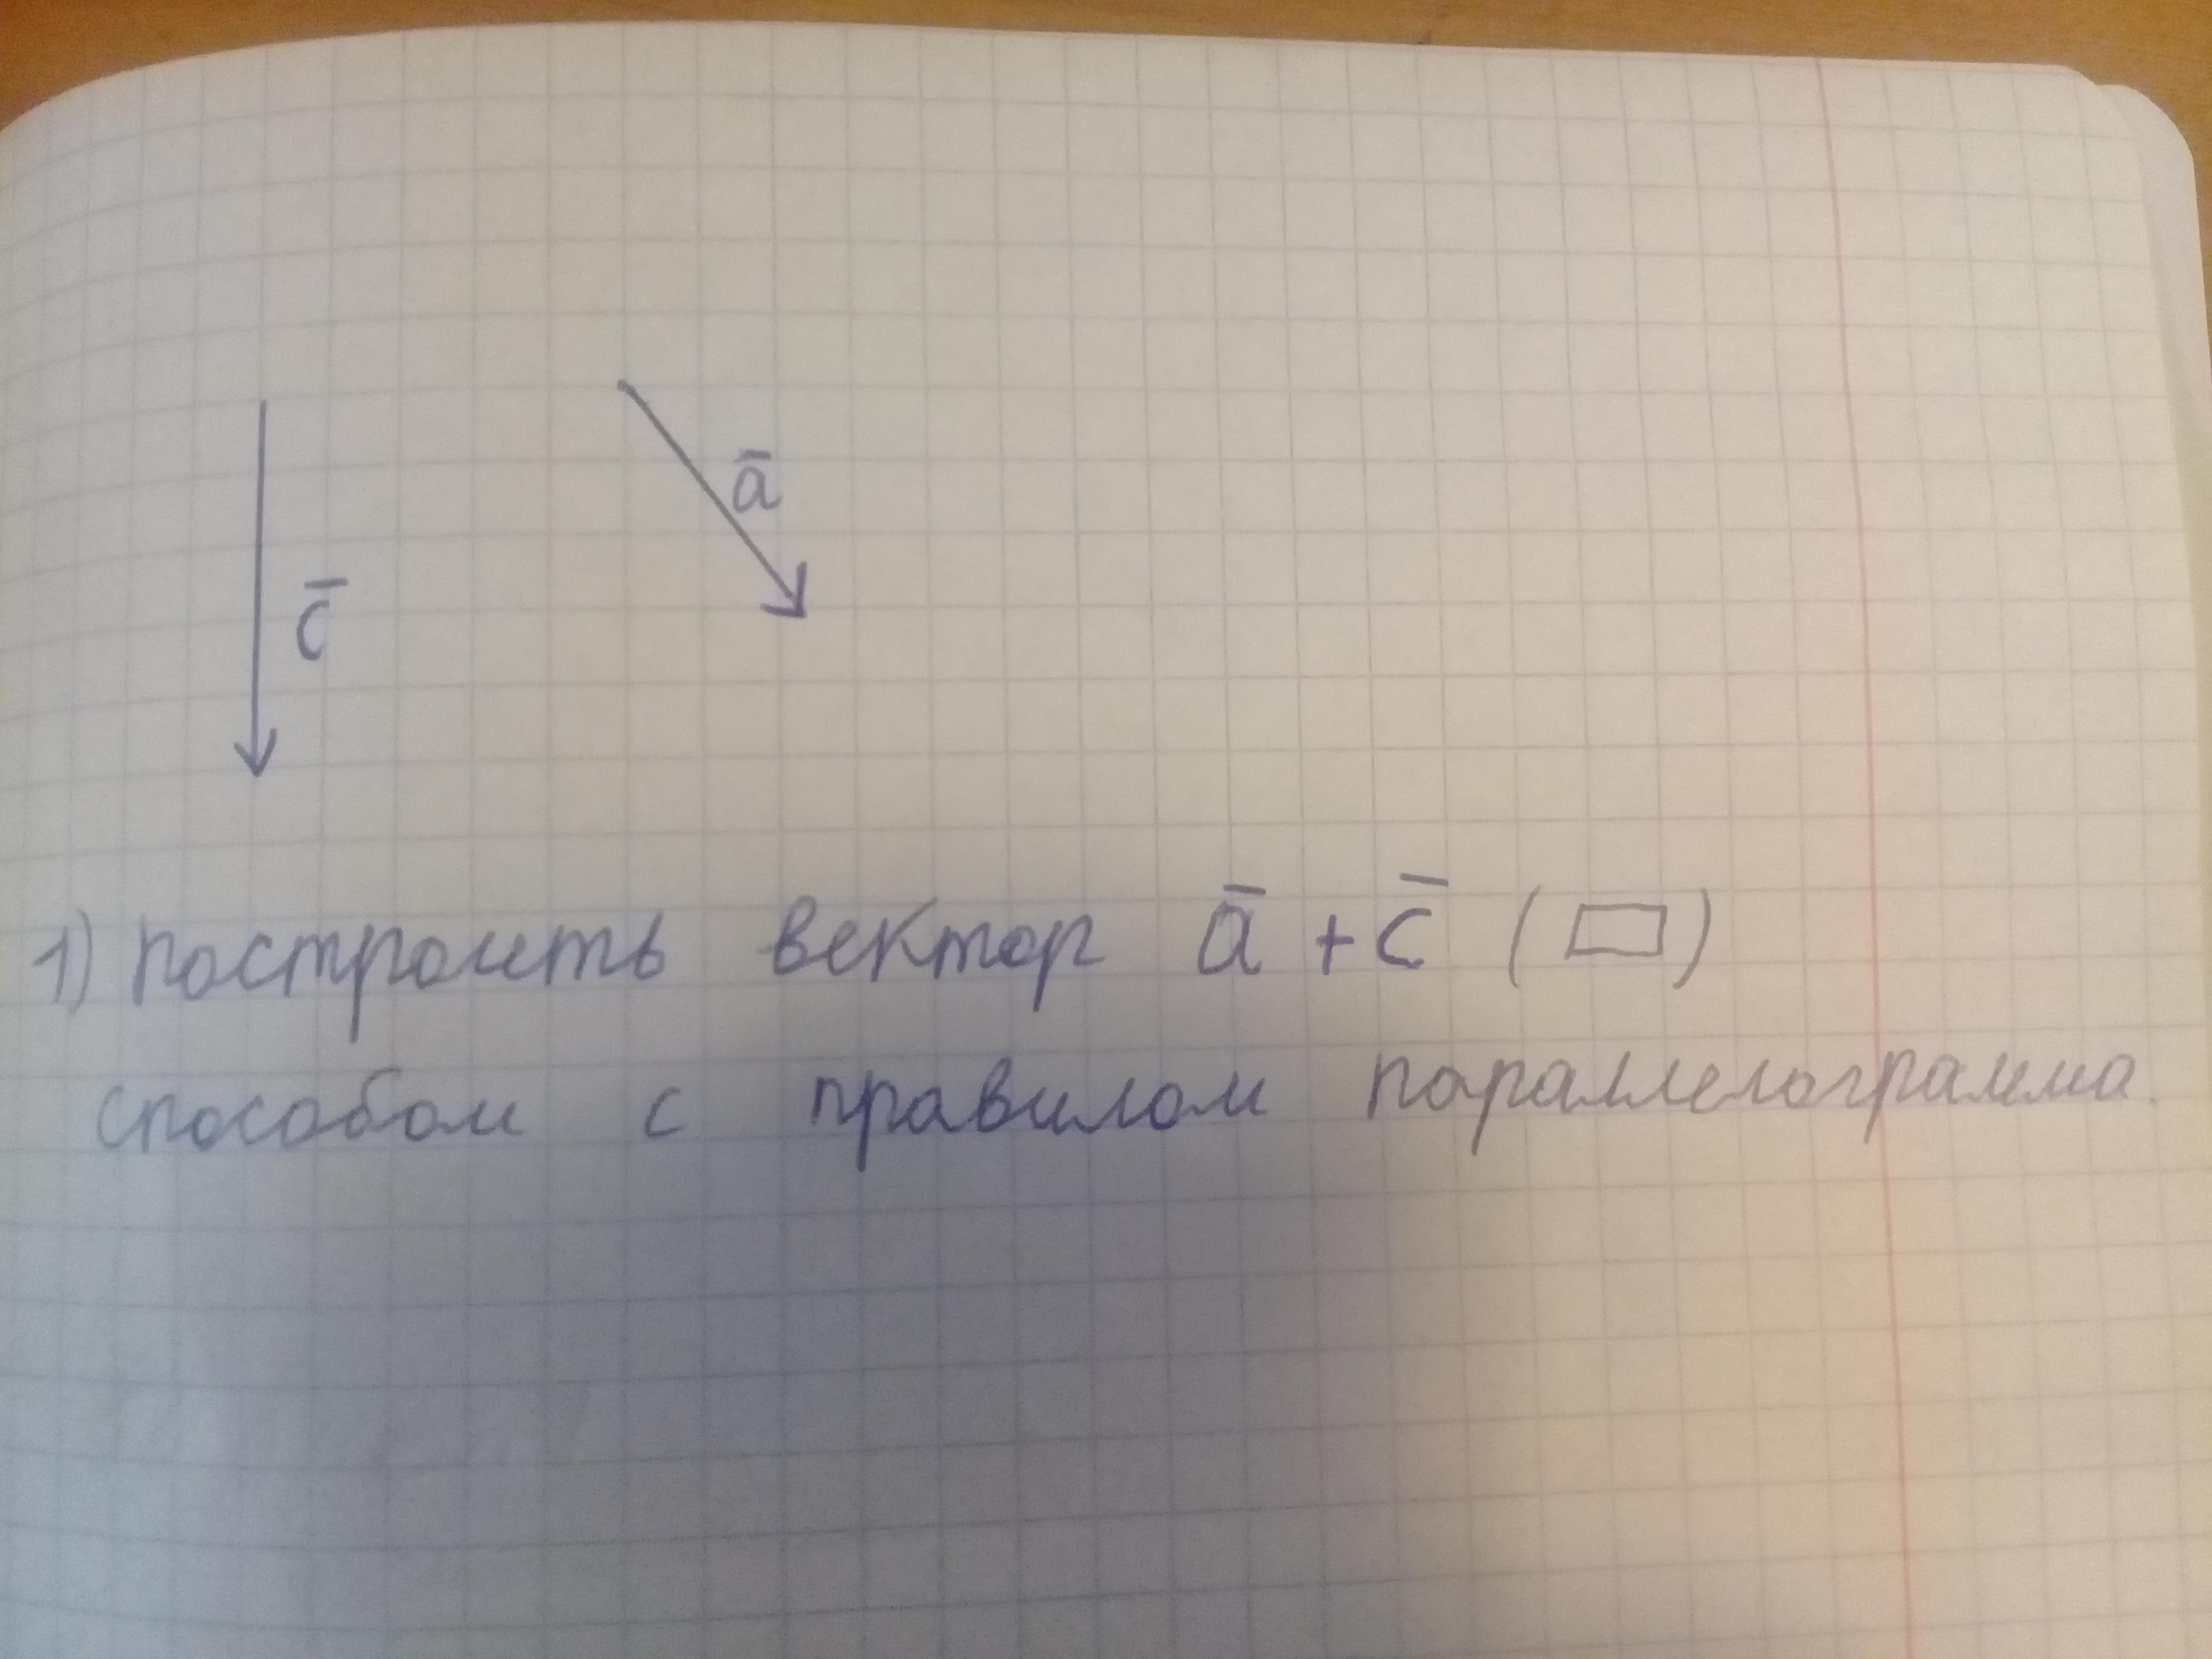 c̅
a̅
1) построить вектор a̅ + c̅ (▭)
способом с правилом параллелограмма.